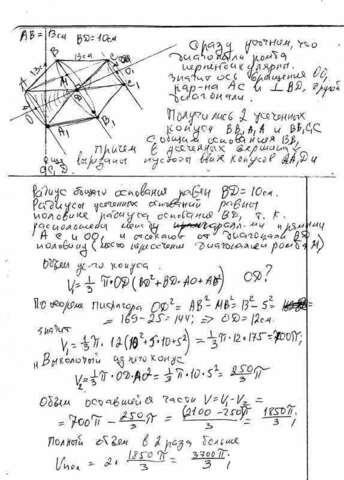 AB=13см BD=10см
Сразу уточним, что
диагонали ромба
перпендикулярны.
значит ось вращения OO₁
пар-на AC и ⊥ BD, другой
диагонали.
Получились 2 усеченных
конуса BB₁A₁A и BB₁C₁C
С общим основания BB₁
Причем в усеченных вершину
вырезаны пустоты в виде конусов AA₁D и
CC₁D.
Радиус общего основания равен BD=10см.
Радиусы усеченных оснований равны
половине радиуса основание BD, т.к.
расположены между паралл-ми прямыми
AC и OO₁ и отстоят от диагонали BD
половину (место пересечения диагоналей ромба M)
Объем ус-го конуса
V₁=1/3 π·OD(BD²+BD·AO+AO²) OD?
По теореме пифагора OD²=AB²-MB²=13²-5²
=169-25=144; => OD=12см.
значит
V₁=1/3 π·12(10²+5·10+5²)=1/3 π·12·175=700π;
Выколотый из него конус
V₂=1/3 π·OD·AO²=1/3 π·10·5²=250/3 π
Объем оставшейся части V=V₁-V₂=
=700π-250/3 π=(2100-250)π/3=1850π/3;
Полный объем в 2 раза больше
Vпол=2·1850π/3=3700π/3;